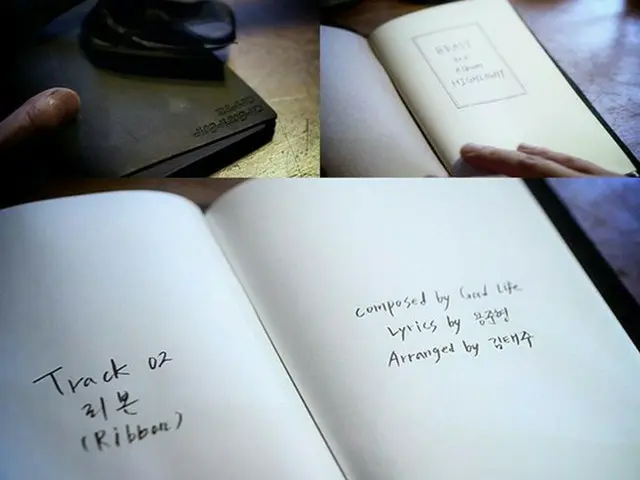 BEAST
3rd
Album
HIGHLIGHT
Track 02
리본
(Ribbon)
composed by Good Life
Lyrics by 용준형
Arranged by 김태주